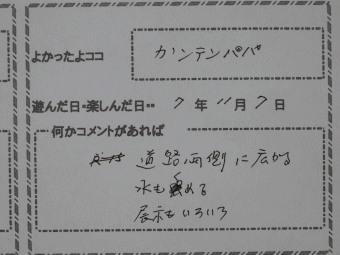 よかったよココ カンテンパパ
遊んだ日・楽しんだ日・・ 7年11月7日
何かコメントがあれば
道路両側に広がる
水も める
展示もいろいろ